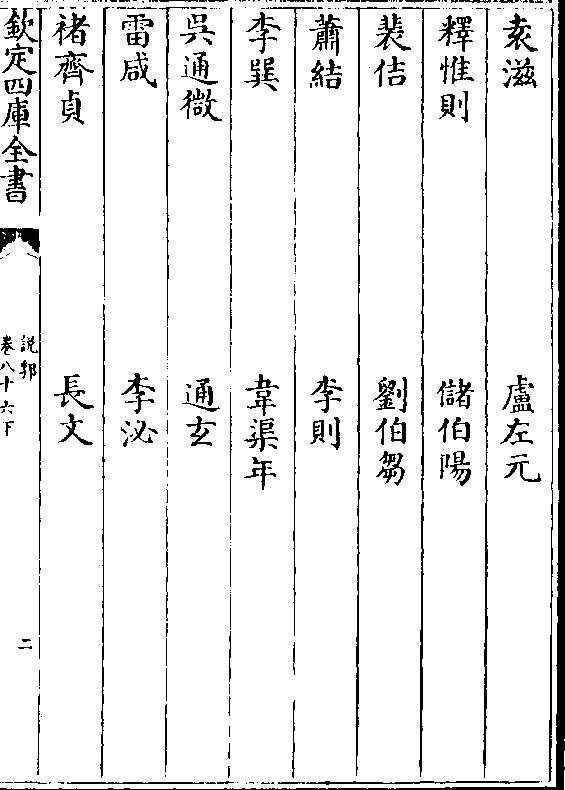 袁滋　盧左元
釋惟則　儲伯陽
裴佶　劉伯芻
蕭結　李則
李巽　韋渠年
吳通微　通玄
雷咸　李泌
褚齊貞　長文
欽定四庫全書　說郛卷八十六下　二